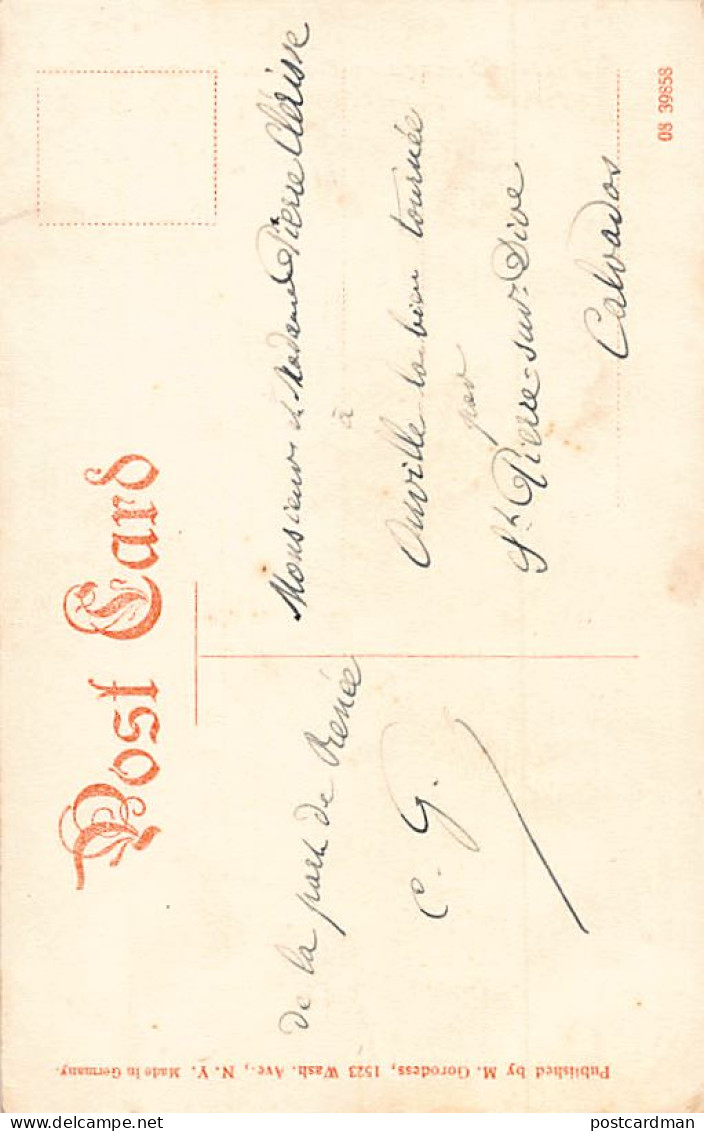 Post Card
de la part de Renée
C. G.
Monsieur et Madame Pierre Clérisse
à
Ouville la bien tournée
par
St Pierre-sur-Dive
Calvados
08 39858
Published by M. Gorodess, 1523 Wash. Ave., N. Y. Made in Germany.
postcardman